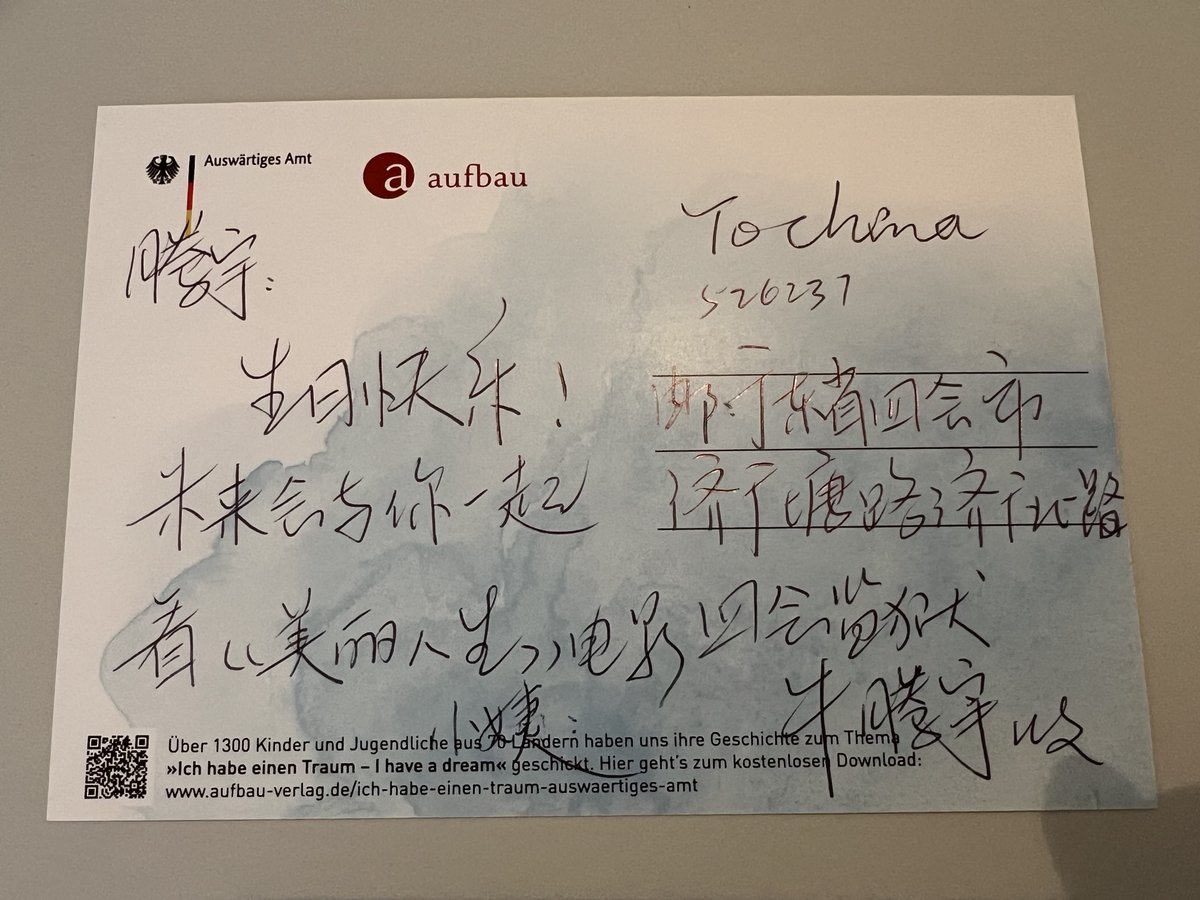 Auswärtiges Amt
a aufbau
腾宇:
生日快乐!
未来会与你一起
看《美丽人生》电影
To China
526237
广东省四会市
济广塘路济广北路
四会监狱
牛腾宇 收
Über 1300 Kinder und Jugendliche aus 70 Ländern haben uns ihre Geschichte zum Thema
»Ich habe einen Traum – I have a dream« geschickt. Hier geht's zum kostenlosen Download:
www.aufbau-verlag.de/ich-habe-einen-traum-auswaertiges-amt